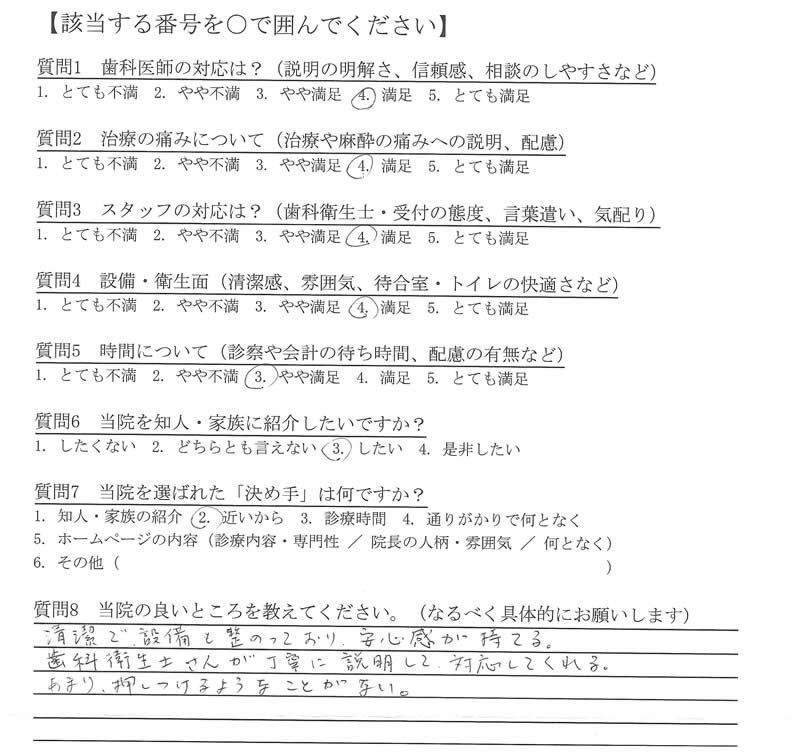 【該当する番号を○で囲んでください】
質問1　歯科医師の対応は？（説明の明解さ、信頼感、相談のしやすさなど）
1. とても不満　2. やや不満　3. やや満足　4. 満足　5. とても満足
質問2　治療の痛みについて（治療や麻酔の痛みへの説明、配慮）
1. とても不満　2. やや不満　3. やや満足　4. 満足　5. とても満足
質問3　スタッフの対応は？（歯科衛生士・受付の態度、言葉遣い、気配り）
1. とても不満　2. やや不満　3. やや満足　4. 満足　5. とても満足
質問4　設備・衛生面（清潔感、雰囲気、待合室・トイレの快適さなど）
1. とても不満　2. やや不満　3. やや満足　4. 満足　5. とても満足
質問5　時間について（診察や会計の待ち時間、配慮の有無など）
1. とても不満　2. やや不満　3. やや満足　4. 満足　5. とても満足
質問6　当院を知人・家族に紹介したいですか？
1. したくない　2. どちらとも言えない　3. したい　4. 是非したい
質問7　当院を選ばれた「決め手」は何ですか？
1. 知人・家族の紹介　2. 近いから　3. 診療時間　4. 通りがかりで何となく
5. ホームページの内容（診療内容・専門性 ／ 院長の人柄・雰囲気 ／ 何となく）
6. その他（　　　　　　　　　　）
質問8　当院の良いところを教えてください。（なるべく具体的にお願いします）
清潔で、設備も整のっており、安心感が持てる。
歯科衛生士さんが丁寧に説明して、対応してくれる。
あまり、押しつけるようなことがない。